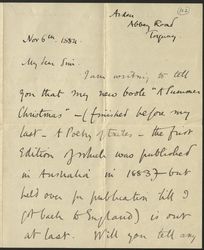 Arden
Abbey Road
Torquay.
Nov 6th 1884.
My dear Sir.
I am writing to tell
you that my new book "A Summer
Christmas" – (finished before my
last – A Poetry of Exiles – the first
Edition of which was published
in Australia in 1883) but
held over for publication till I
got back to England) is out
at last. Will you tell any